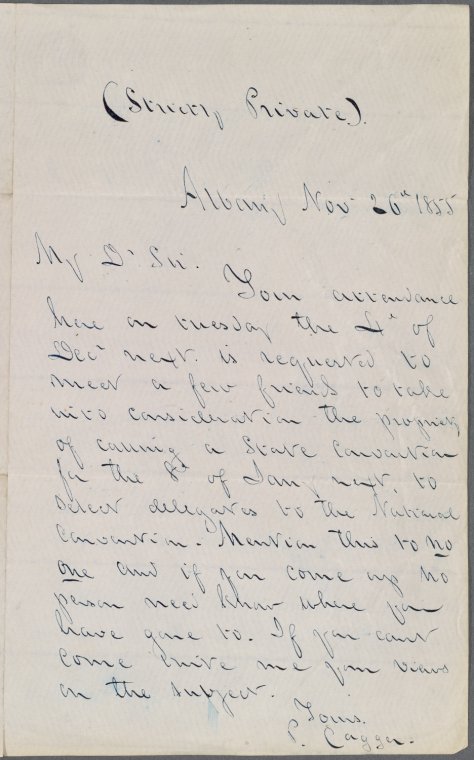 (Strictly Private).
Albany Nov 26th 1855
My Dr Sir.
Your attendance
here on tuesday the 4th of
Decr next is requested to
meet a few friends to take
into consideration the propriety
of calling a State Convention
for the 8th of Jany next, to
select delegates to the National
Convention. Mention this to no
one and if you come up no
person need know where you
have gone to. If you cant
come write me your views
on the subject.
Yours.
P. Cagger.